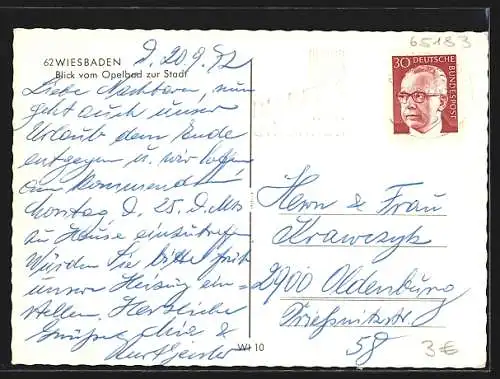 65183
62 WIESBADEN
Blick vom Opelbad zur Stadt
D. 20.9.72
Liebe Nachbarn, nun
geht auch unser
Urlaub dem Ende
entgegen u. wir hoffen
am kommenden
Montag, d. 25. d. Mts
zu Hause einzutreffen.
Würden Sie bitte
unsere Heizung ein =
stellen. Herzliche
Grüße &
30 DEUTSCHE
BUNDESPOST
Herrn & Frau
Krawczyk
2900 Oldenburg
Prießnitzstr.
58
WI 10
3€